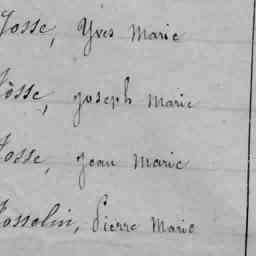 Josse, Yves Marie
Josse, Joseph Marie
Josse, Jean Marie
Josselin, Pierre Marie